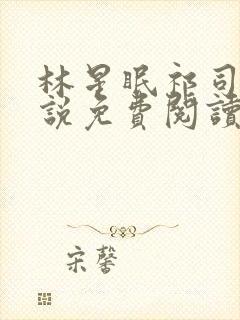 林星眠祁司
說免費閱讀
宋馨